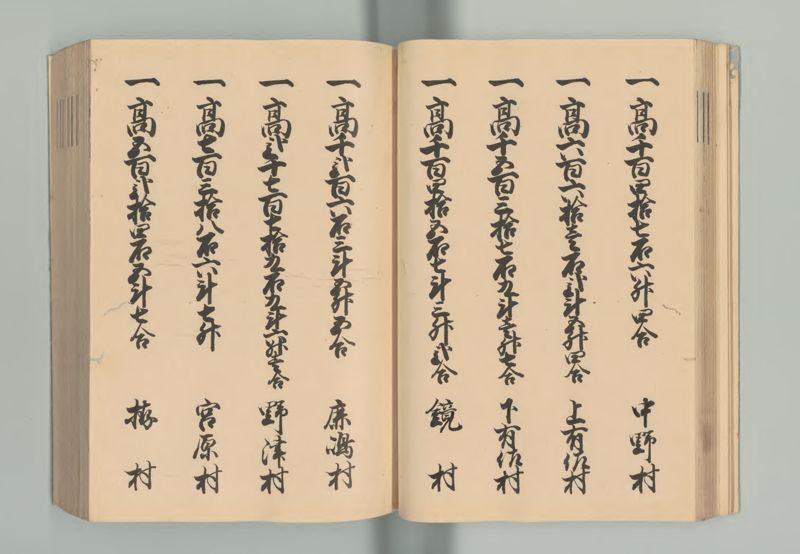 一高千百四拾七石六升四合 中野村
一高六百六拾壱石弐斗五升四合 上有佐村
一高千五百三拾七石九斗壱升七合 下有佐村
一高千百四拾五石七斗三升弐合 鏡村
一高千弐百六石三斗五升五合 鹿嶋村
一高弐千七百七拾九石九斗六升壱合 野津村
一高七百三拾八石六斗七升 宮原村
一高五百弐拾四石五斗七合 村